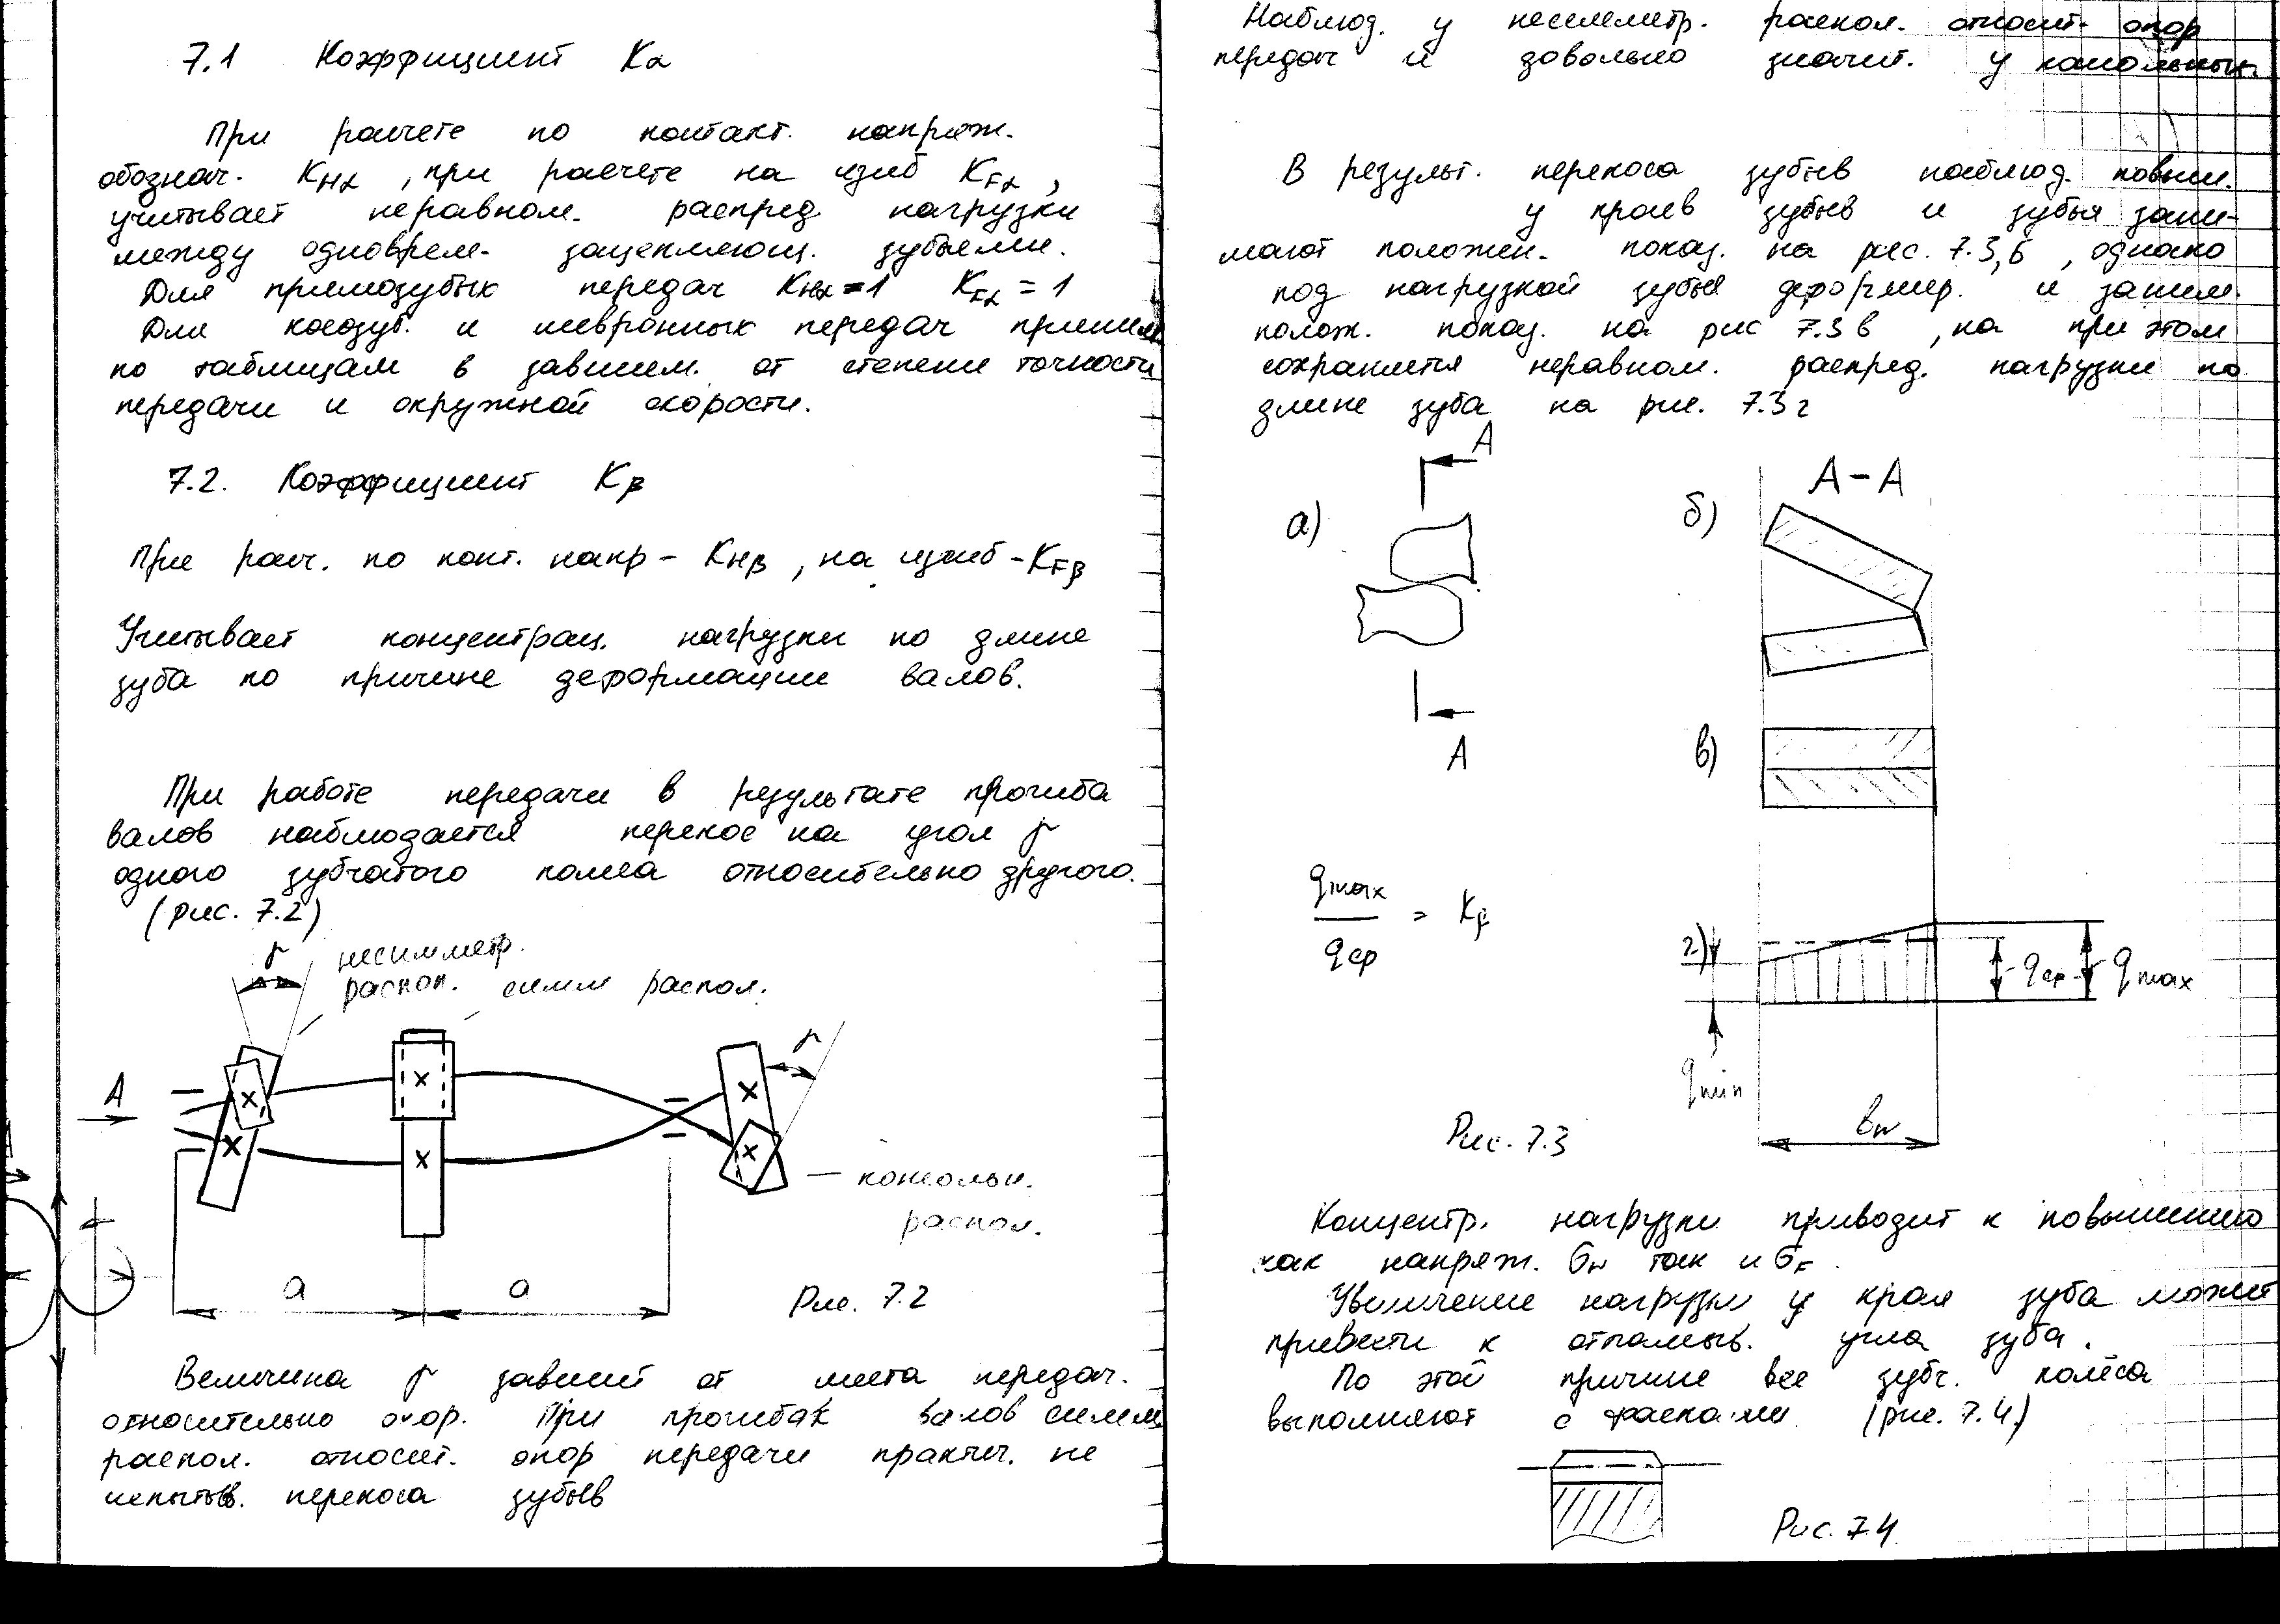 7.1 Коэффициент Kα
При расчете по контакт. напряж.
обознач. KHα, при расчете на изгиб KFα,
учитывает неравном. распред нагрузки
между одноврем. зацепляющ. зубьями.
Для прямозубых передач KHα=1 KFα=1
Для косозуб. и шевронных передач приним
по таблицам в зависим. от степени точности
передачи и окружной скорости.
7.2. Коэффициент Kβ
При расч. по конт. напр - KHβ, на изгиб - KFβ
Учитывает концентрац. нагрузки по длине
зуба по причине деформации валов.
При работе передачи в результате прогиба
валов наблюдается перекос на угол γ
одного зубчатого колеса относительно другого.
(рис. 7.2)
γ несимметр.
распол. симм распол.
γ
A
консольн.
распол.
a a
Рис. 7.2
Величина γ зависит от места передач.
относительно опор. При прогибах валов симм
распол. относит. опор передачи практич. не
испытыв. перекоса зубьев
Наблюд. у несимметр. распол. относит. опор
передач и довольно значит. у консольных.
В результ. перекоса зубьев наблюд. повыш.
у краев зубьев и зубья зани-
мают положен. показ. на рис. 7.3,б, однако
под нагрузкой зубья деформир. и заним.
полож. показ. на рис 7.3 в, на при этом
сохраняется неравном. распред. нагрузки по
длине зуба на рис. 7.3 г
A
A-A
а)
б)
A
в)
qmax
/ qср = Kβ
г)
qср qmax
qmin
bw
Рис. 7.3
Концентр. нагрузки приводит к повышению
как напряж. σн так и σF.
Увеличение нагрузки у края зуба может
привести к отламыв. угла зуба.
По этой причине все зубч. колёса
выполняют с фасками (рис. 7.4)
Рис. 7.4